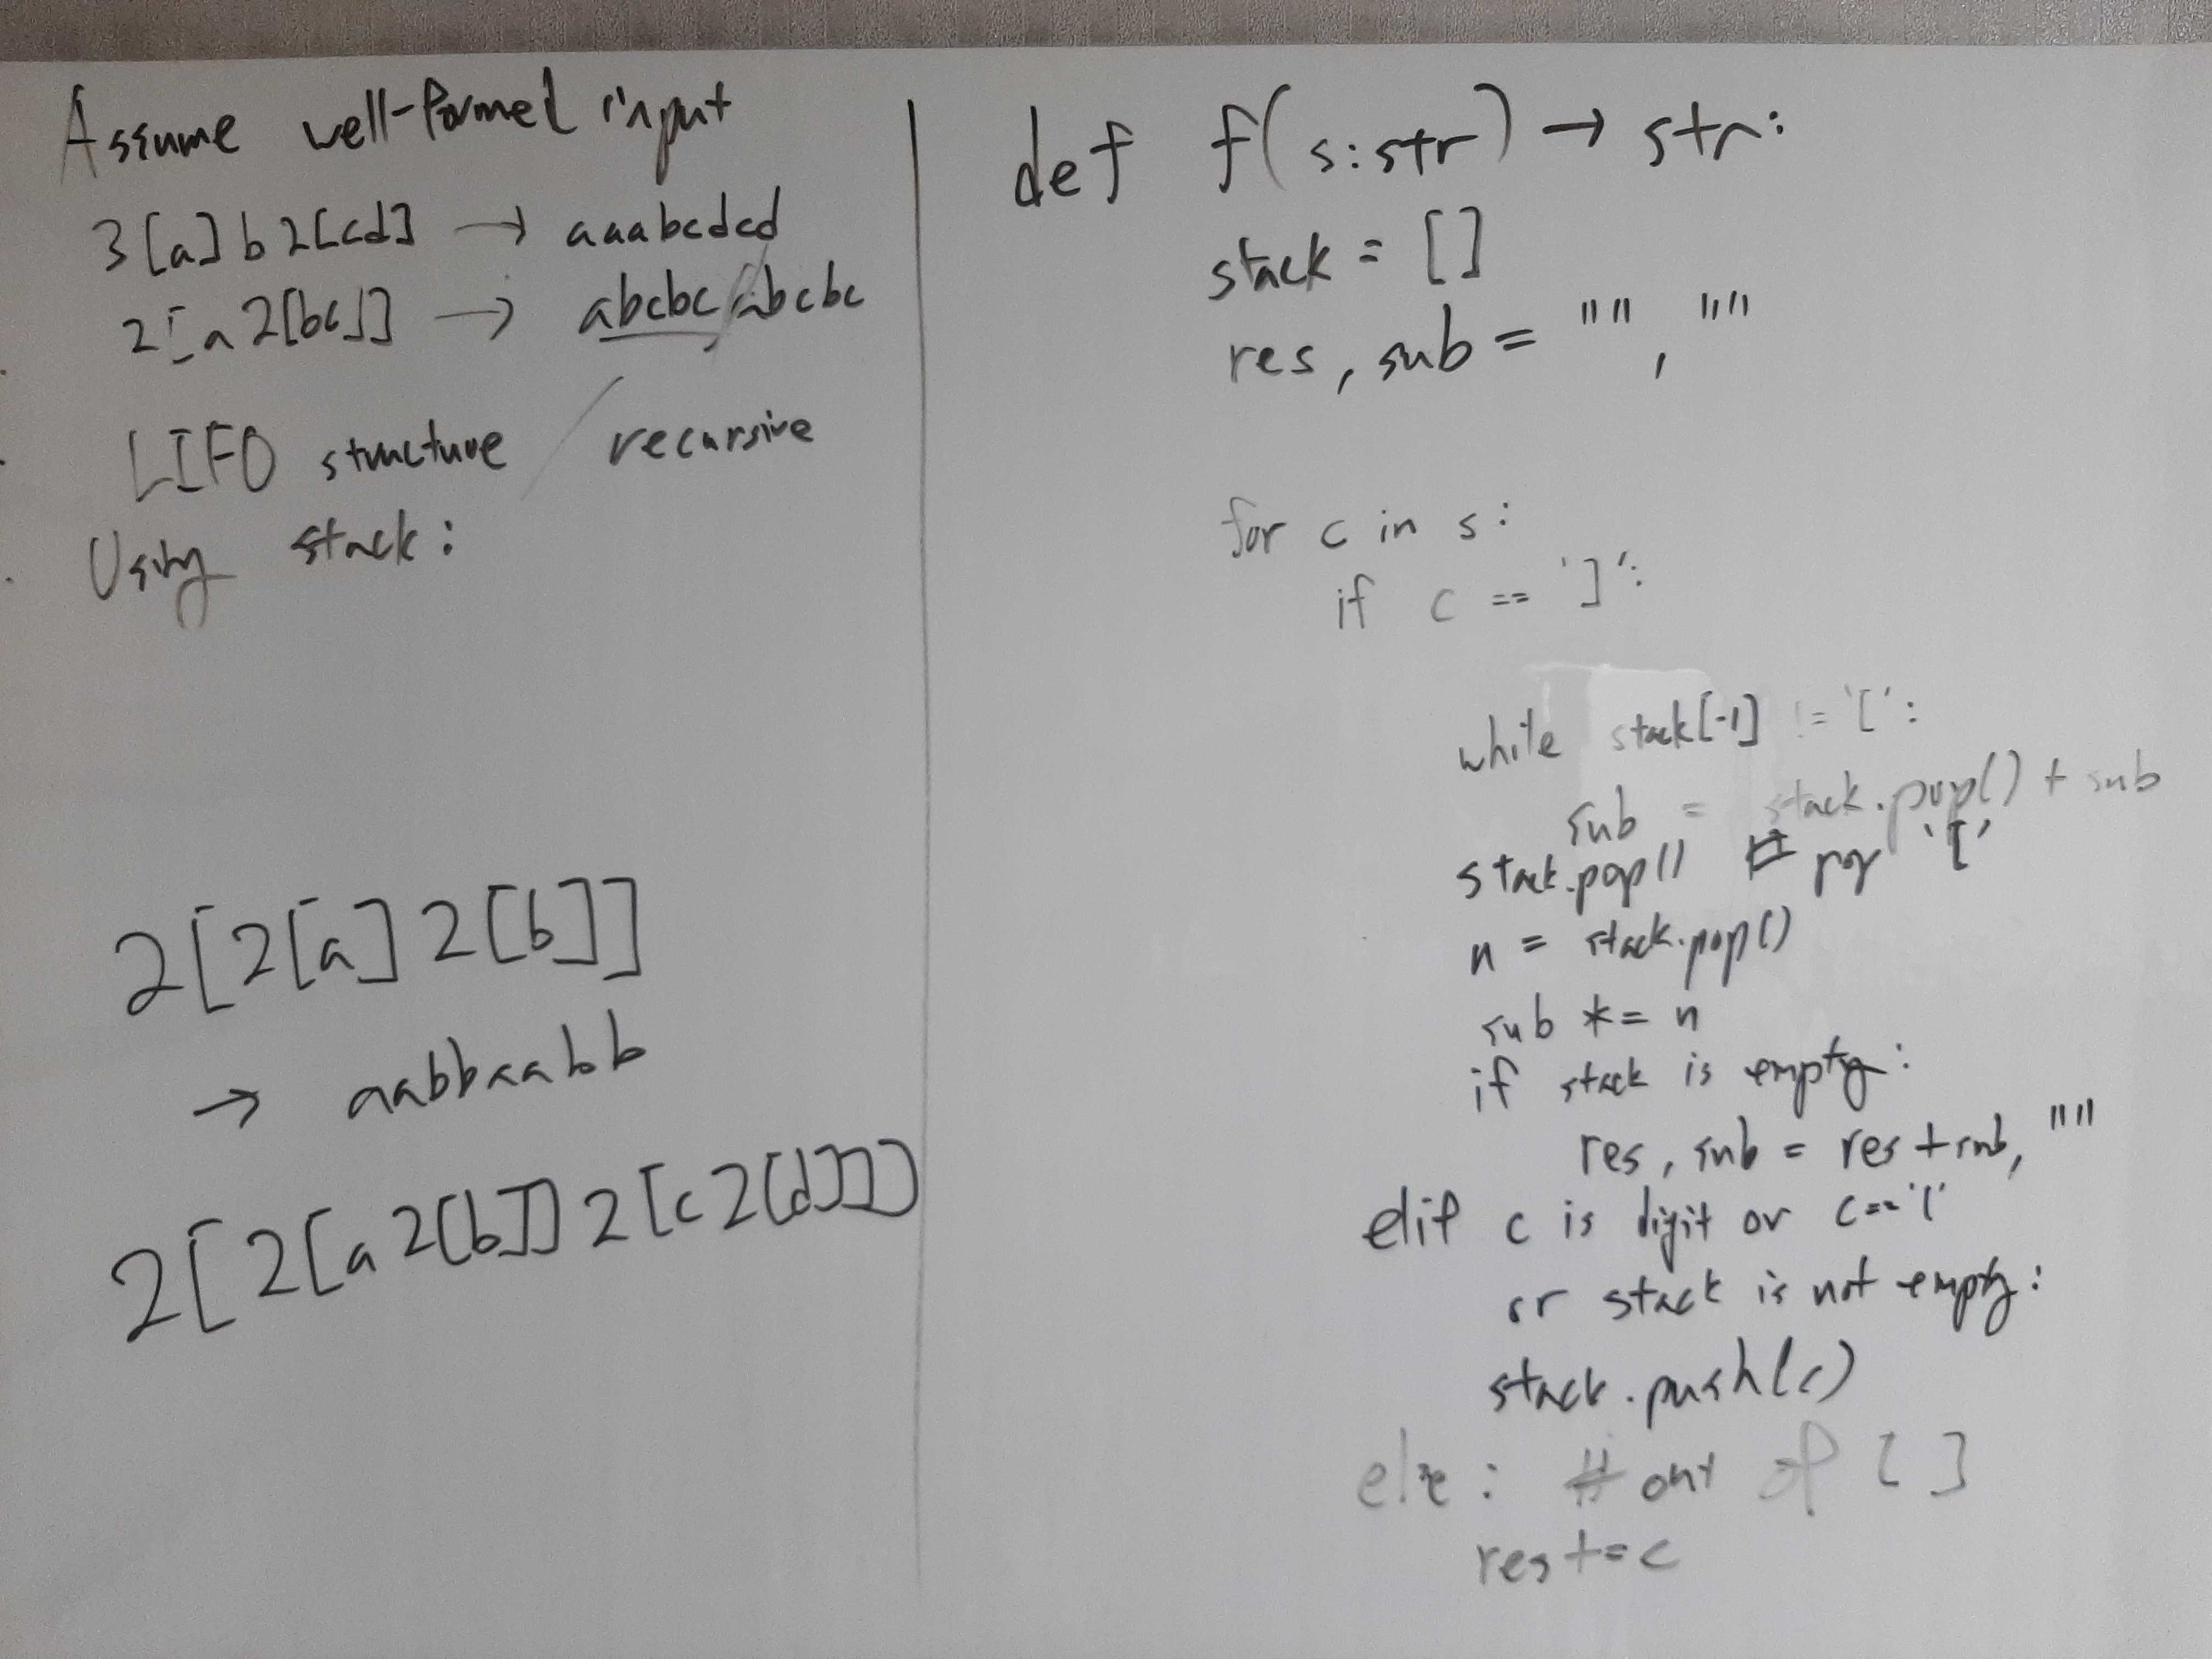 Assume well-formed input
3[a]b2[cd] → aaabcdcd
2[a2[bc]] → abcbcabcbc
LIFO structure / recursive
Using stack:
2[2[a]2[b]]
→ aabbaabb
2[2[a2[b]]2[c2[d]]]
def f(s:str) → str:
stack = []
res, sub = "", ""
for c in s:
if c == ']':
while stack[-1] != '[':
sub = stack.pop() + sub
stack.pop() # pop '['
n = stack.pop()
sub *= n
if stack is empty:
res, sub = res + sub, ""
elif c is digit or c == '['
or stack is not empty:
stack.push(c)
else: # out of [ ]
res += c